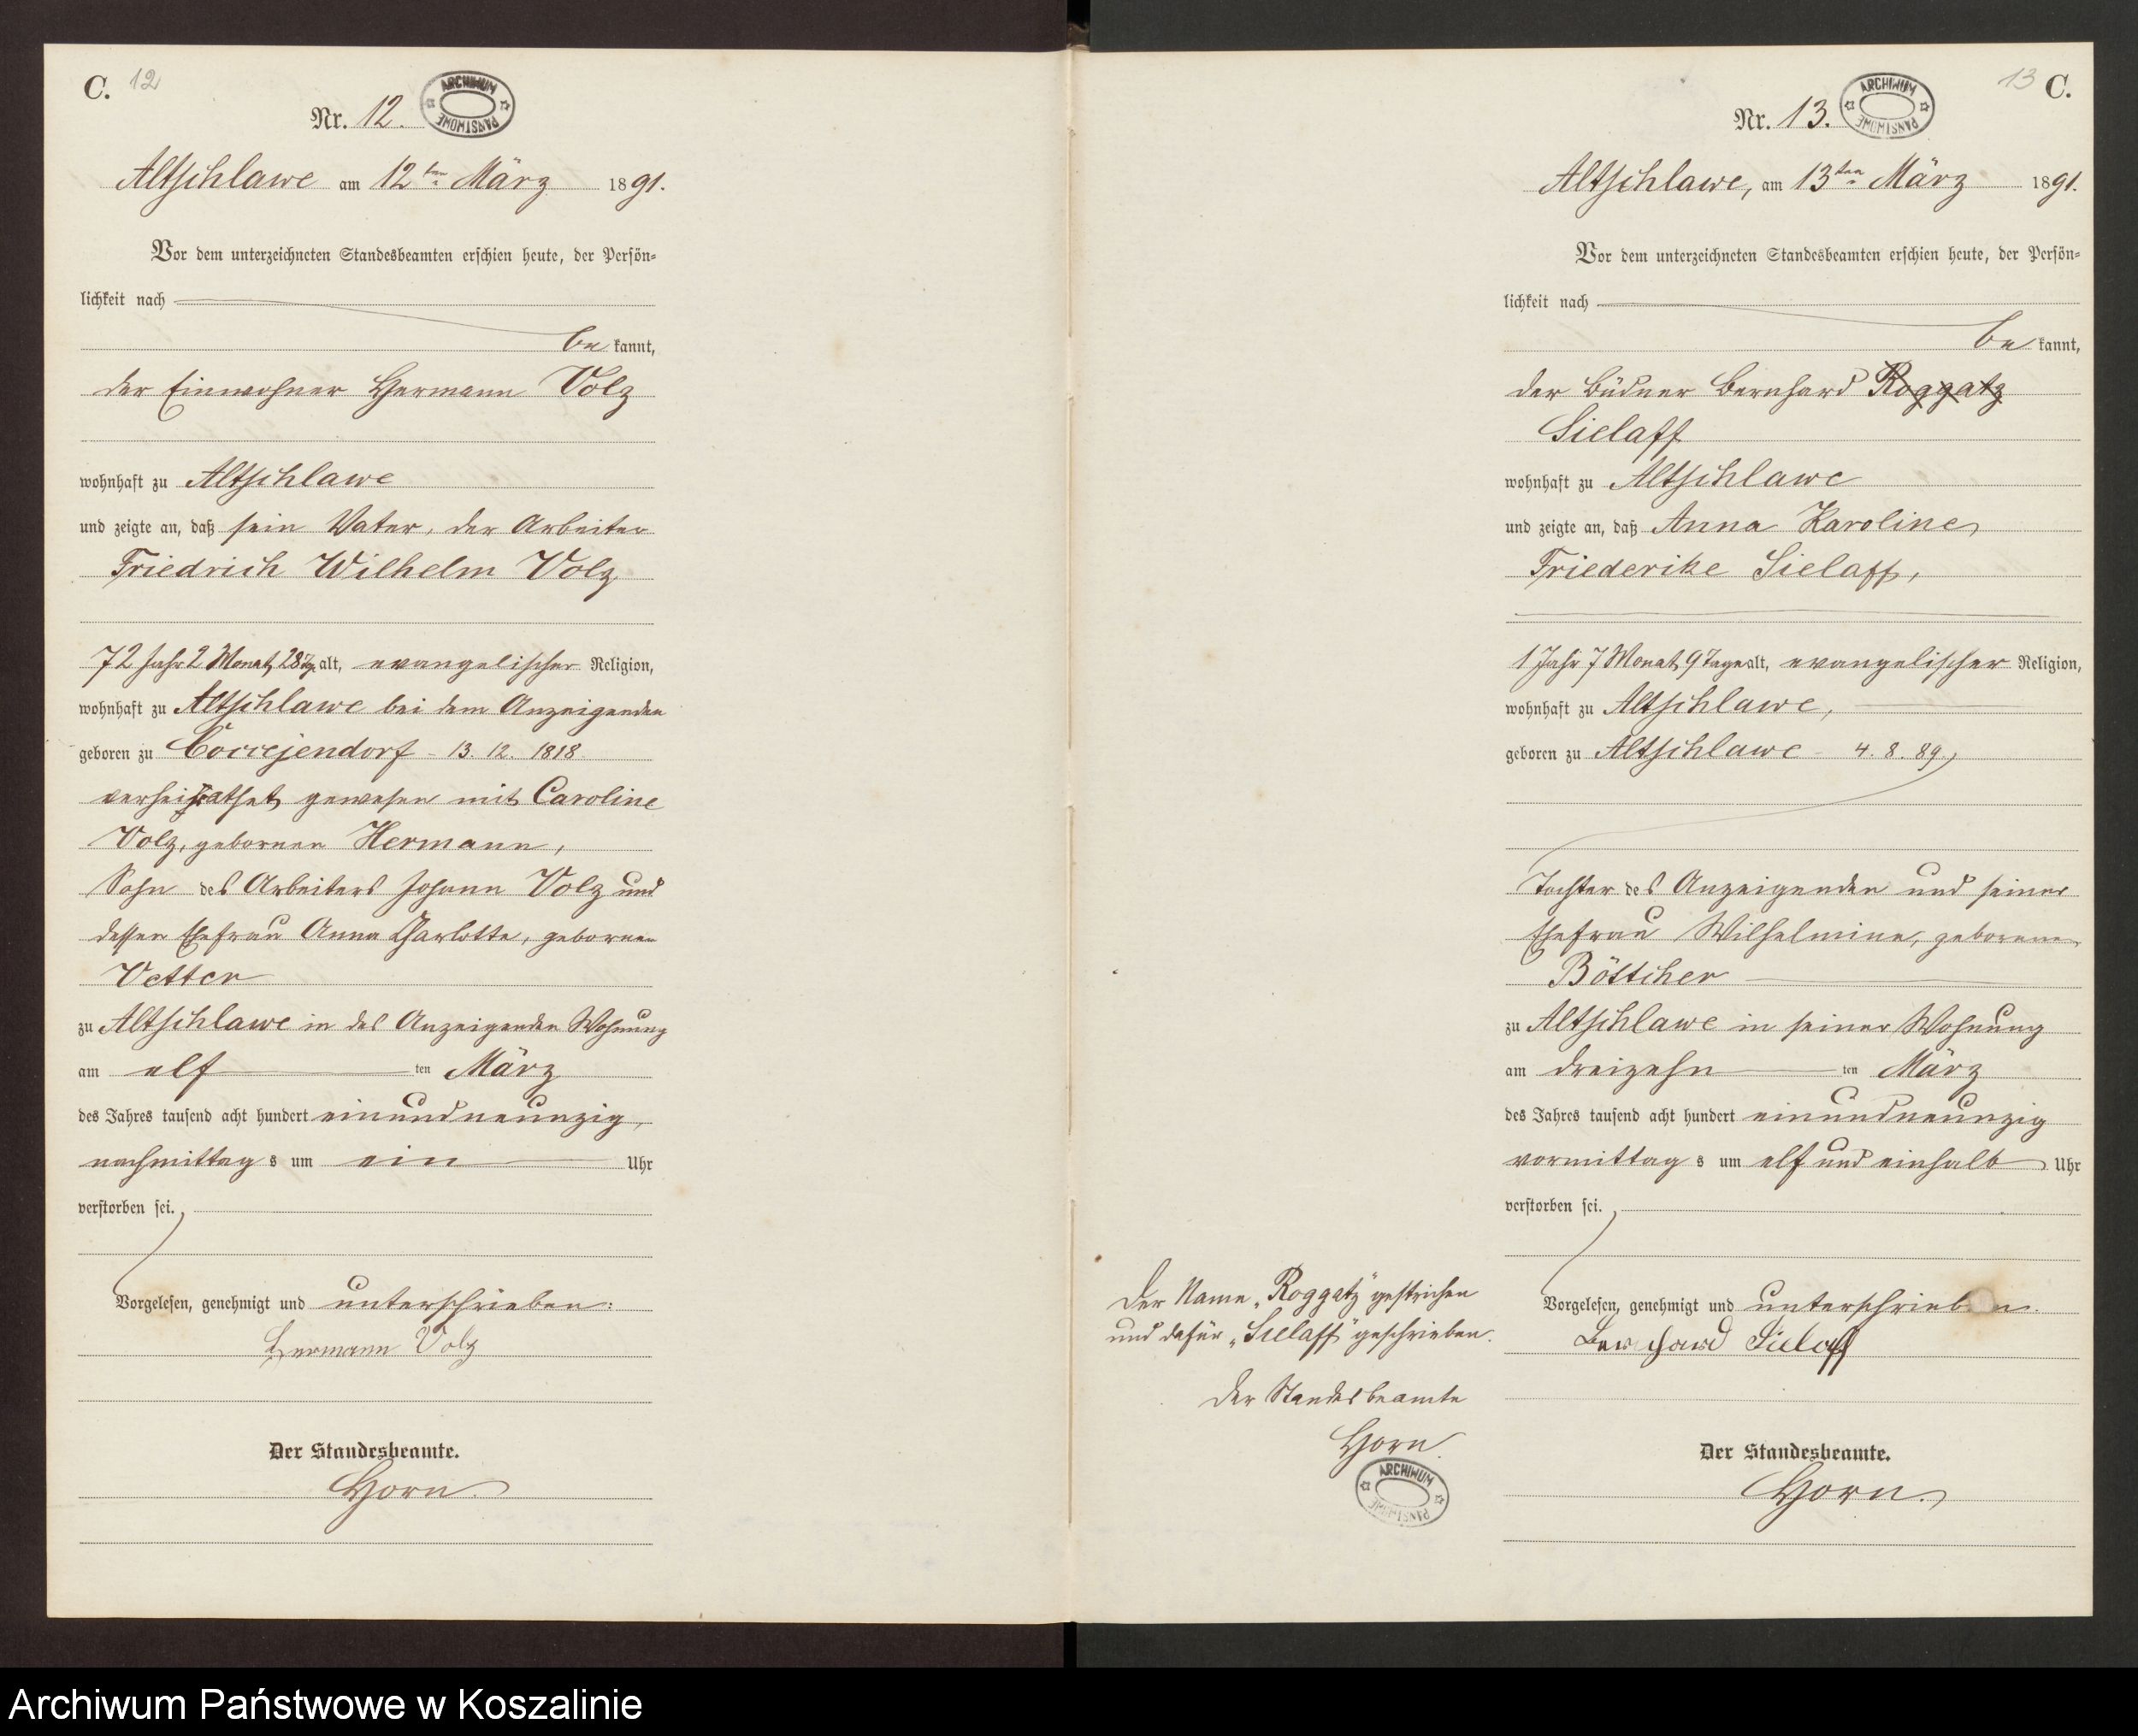 C. 12
ARCHIWUM PAŃSTWOWE
Nr. 12.
Altschlawe am 12ten März 1891.
Vor dem unterzeichneten Standesbeamten erschien heute, der Persön-
lichkeit nach
be kannt,
der Einwohner Hermann Volz
wohnhaft zu Altschlawe
und zeigte an, daß sein Vater, der Arbeiter
Friedrich Wilhelm Volz
72 Jahr 2 Monat 28 Tg. alt, evangelischer Religion,
wohnhaft zu Altschlawe bei dem Anzeigenden
geboren zu Coccejendorf - 13. 12. 1818
verheirathet gewesen mit Caroline
Volz, geborenen Hermann,
Sohn des Arbeiters Johann Volz und
dessen Ehefrau Anna Charlotte, geborenen
Vetter
zu Altschlawe in des Anzeigenden Wohnung
am elf ten März
des Jahres tausend acht hundert einundneunzig,
nachmittag s um ein Uhr
verstorben sei.
Vorgelesen, genehmigt und unterschrieben:
Hermann Volz
Der Standesbeamte.
Horn.
13 C.
ARCHIWUM PAŃSTWOWE
Nr. 13.
Altschlawe, am 13ten März 1891.
Vor dem unterzeichneten Standesbeamten erschien heute, der Persön-
lichkeit nach
be kannt,
der Büdner Bernhard Roggatz
Sielaff
wohnhaft zu Altschlawe
und zeigte an, daß Anna Karoline
Friederike Sielaff,
1 Jahr 7 Monat 9 Tage alt, evangelischer Religion,
wohnhaft zu Altschlawe,
geboren zu Altschlawe - 4. 8. 89.
Tochter des Anzeigenden und seiner
Ehefrau Wilhelmine, geborene
Böttcher
zu Altschlawe in seiner Wohnung
am dreizehn ten März
des Jahres tausend acht hundert einundneunzig
vormittag s um elf und einhalb Uhr
verstorben sei.
Vorgelesen, genehmigt und unterschrieben.
Bernhard Sielaff
Der Standesbeamte.
Horn.
Der Name „Roggatz“ gestrichen
und dafür „Sielaff“ geschrieben.
Der Standesbeamte
Horn
ARCHIWUM PAŃSTWOWE
Archiwum Państwowe w Koszalinie